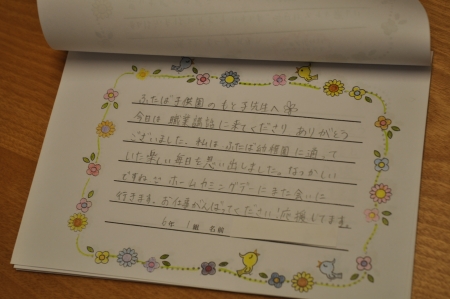 ふたば子供園のもと子先生へ
今日は職業講話に来てくださりありがとう
ございました。私は、ふたば幼稚園に通って
いた楽しい毎日を思い出しました。なつかしい
ですね。ホームカミングデーにまた会いに
行きます。お仕事がんばってください!応援してます。
6年 1組 名前